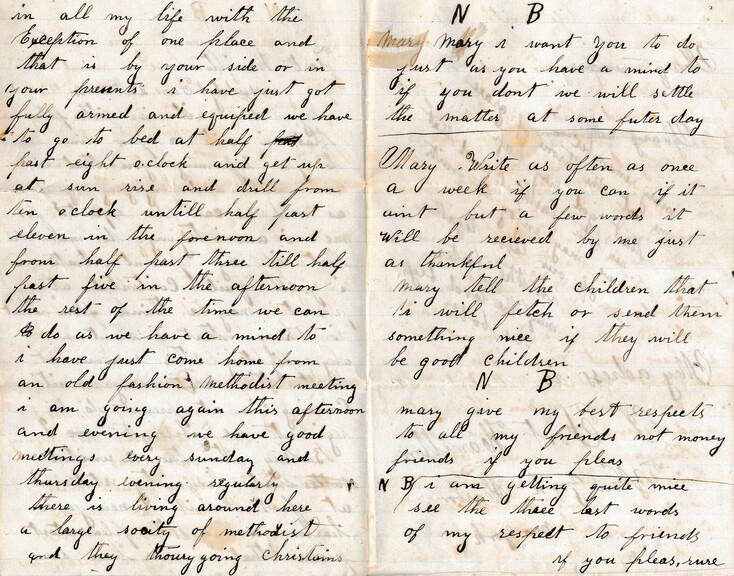 in all my life with the
Exception of one place and
that is by your side or in
your presents i have just got
fully armed and equiped we have
to go to bed at half
past eight oclock and get up
at sun rise and drill from
ten oclock untill half past
eleven in the forenoon and
from half past three till half
past five in the afternoon
the rest of the time we can
do as we have a mind to
i have just come home from
an old fashion methodist meeting
i am going again this afternoon
and evening we have good
meetings every sunday and
thursday evening regularly
there is living around here
a large socity of methodist
and they thourygoing Christians
N B
Mary Mary i want you to do
just as you have a mind to
if you dont we will settle
the matter at some futer day
Mary Write as often as once
a week if you can if it
aint but a few words it
Will be recieved by me just
as thankful
mary tell the children that
i will fetch or send them
something nice if they will
be good children
N B
mary give my best respects
to all my friends not money
friends if you pleas
N B i am getting quite nice
see the three last words
of my respect to friends
if you pleas, sure